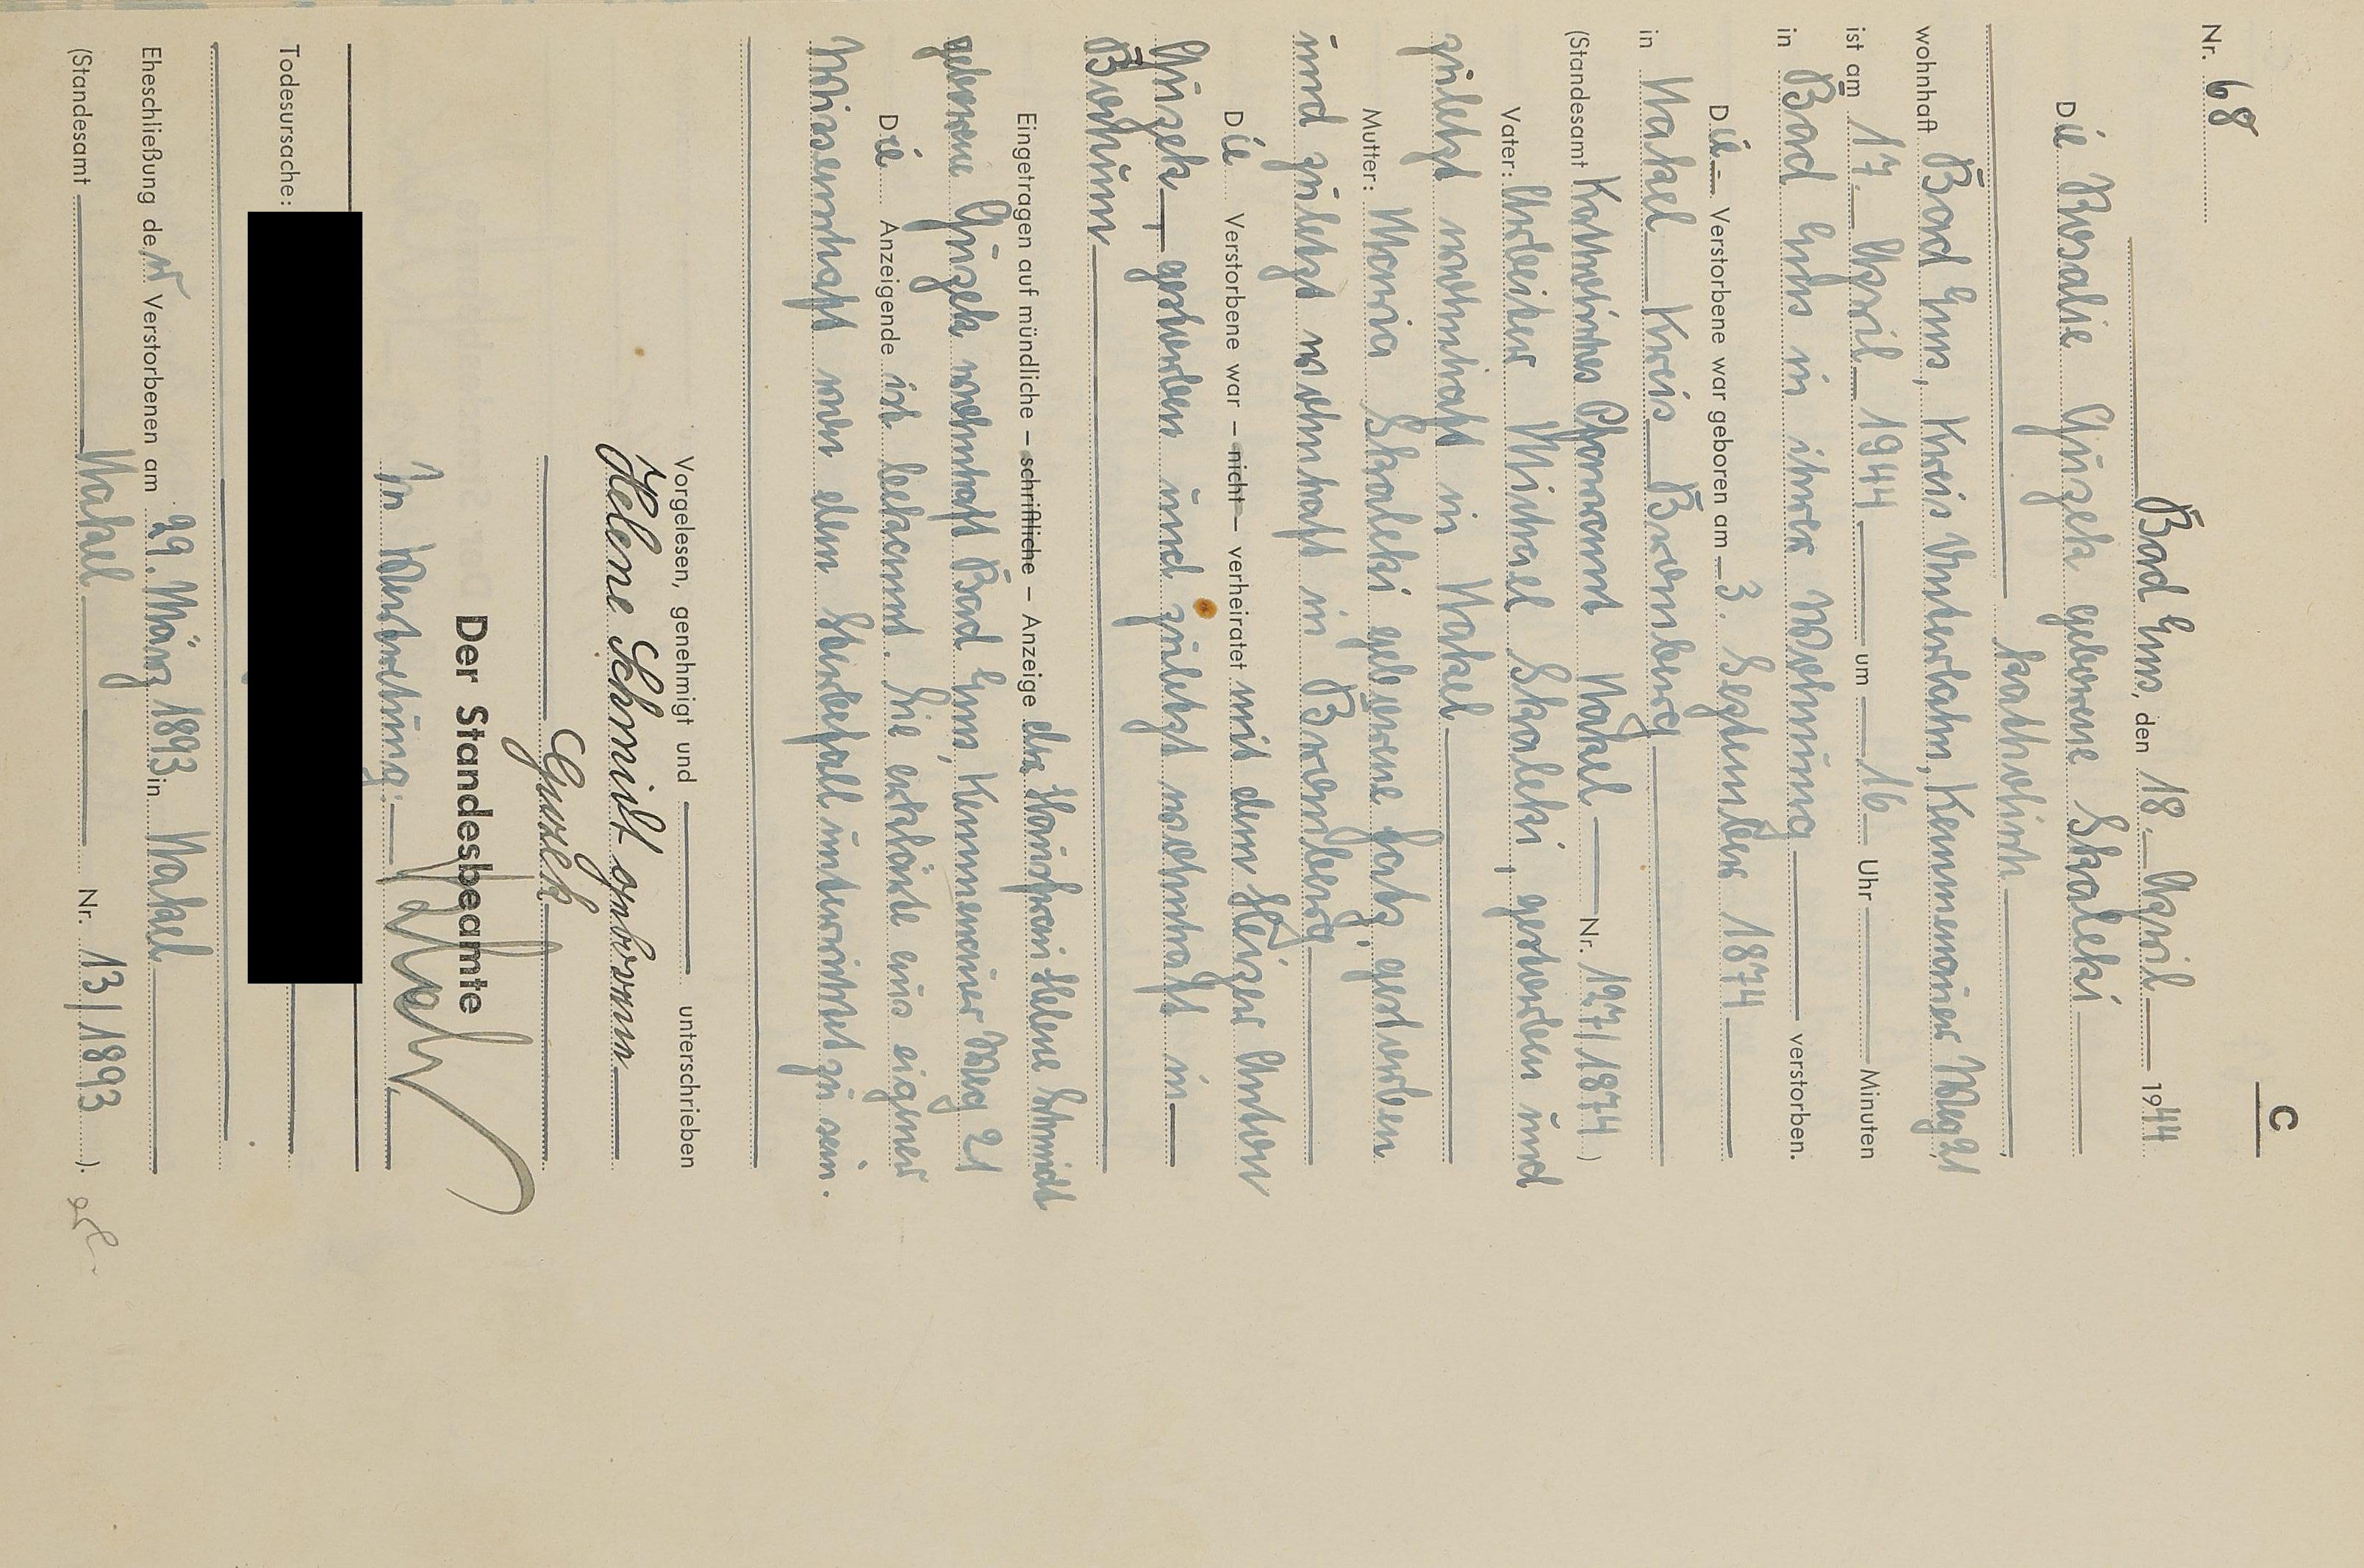 C
Nr. 68
Bad Ems, den 18. April 1944
Die Rosalie Guzek geborene Skaleki
katholisch
wohnhaft Bad Ems, Kreis Unterlahn, Kemmenauer Weg 21,
ist am 17. April 1944 um 16 Uhr Minuten
in Bad Ems in ihrer Wohnung verstorben.
Die Verstorbene war geboren am 3. September 1874
in Nakel Kreis Bromberg
(Standesamt Katholisches Pfarramt Nakel Nr. 127/1874)
Vater: Arbeiter Michael Skaleki, gestorben und
zuletzt wohnhaft in Nakel
Mutter: Maria Skaleki geborene Gatz, gestorben
und zuletzt wohnhaft in Bromberg
Die Verstorbene war – nicht – verheiratet mit dem Heizer Anton
Guzek, gestorben und zuletzt wohnhaft in
Bochum
Eingetragen auf mündliche – schriftliche – Anzeige der Hausfrau Helene Schmidt
geborene Guzek wohnhaft Bad Ems, Kemmenauer Weg 21
Die Anzeigende ist bekannt. Sie erklärte aus eigner
Wissenschaft von dem Sterbefall unterrichtet zu sein.
Vorgelesen, genehmigt und unterschrieben
Helene Schmidt geborenen
Guzek
Der Standesbeamte
In Vertretung:
Todesursache:
Eheschließung der Verstorbenen am 29. März 1893 in Nakel
(Standesamt Nakel Nr. 13/1893).